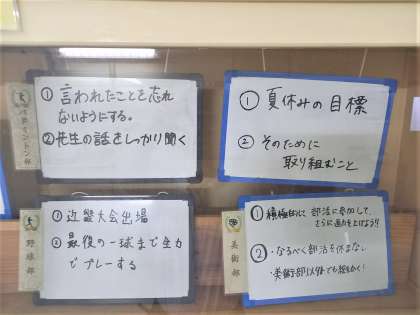 バドミントン部
①言われたことを忘れ
ないようにする。
②先生の話をしっかり聞く
①夏休みの目標
②そのために
取り組むこと
野球部
①近畿大会出場
②最後の一球まで全力
でプレーする
美術部
①積極的に部活に参加して、
さらに画力を上げよう!!
②・なるべく部活を休まない
・美術部以外でも絵をかく!